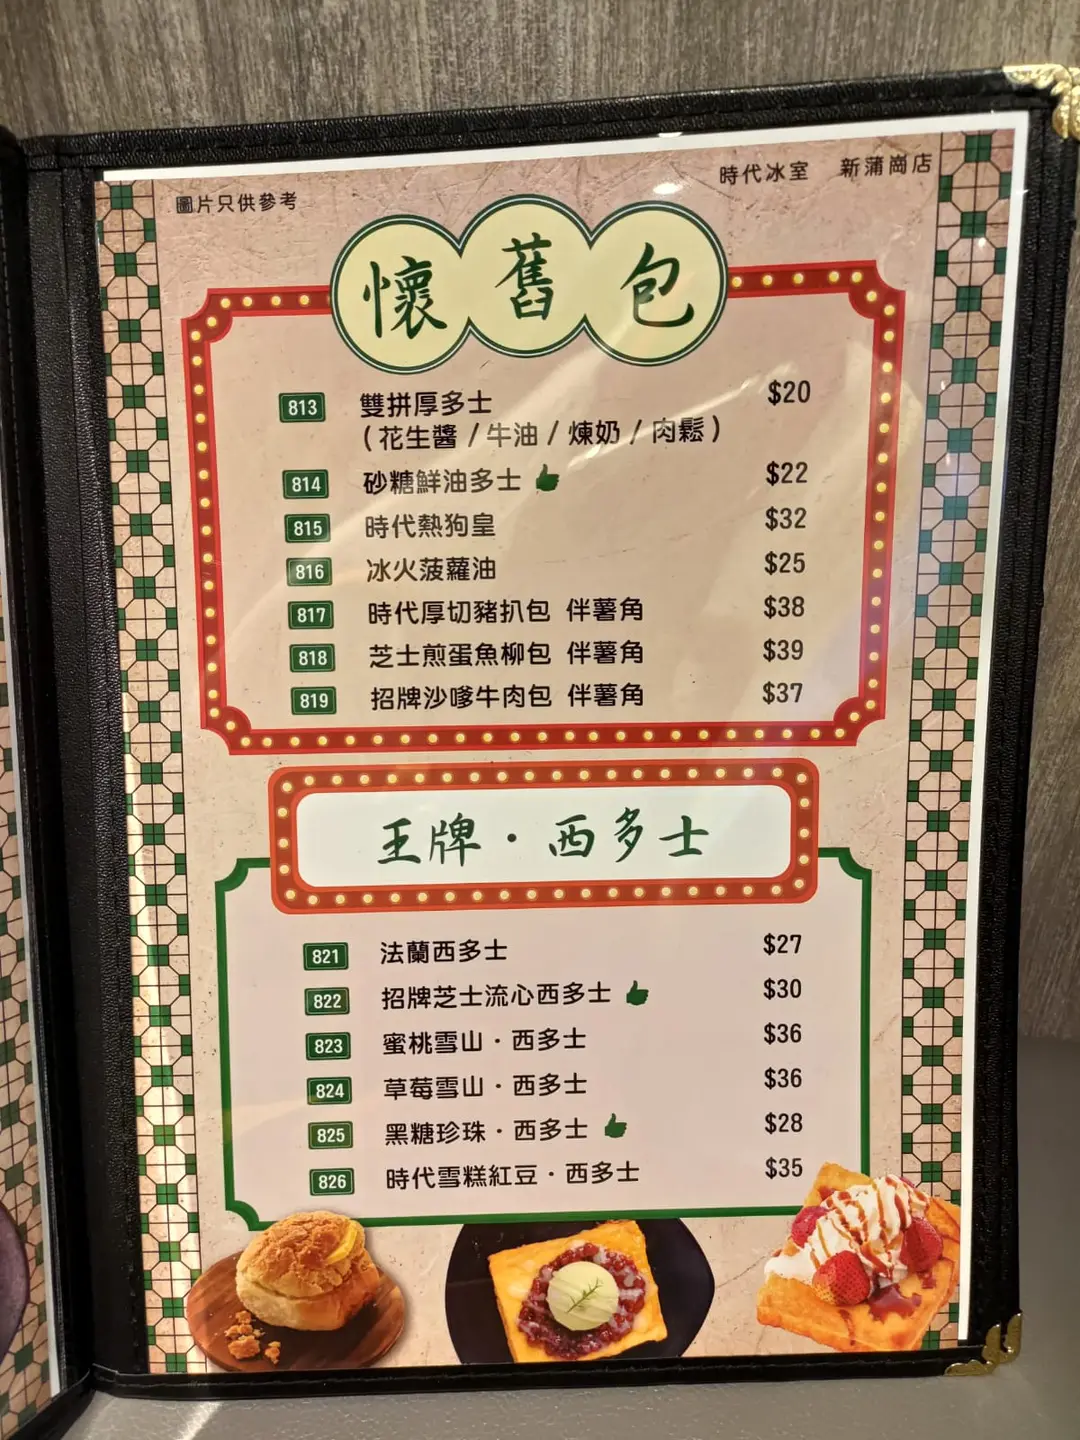 時代冰室 新蒲崗店
圖片只供參考
懷舊包
813 雙拼厚多士 $20
(花生醬/牛油/煉奶/肉鬆)
814 砂糖鮮油多士 $22
815 時代熱狗皇 $32
816 冰火菠蘿油 $25
817 時代厚切豬扒包 伴薯角 $38
818 芝士煎蛋魚柳包 伴薯角 $39
819 招牌沙嗲牛肉包 伴薯角 $37
王牌・西多士
821 法蘭西多士 $27
822 招牌芝士流心西多士 $30
823 蜜桃雪山・西多士 $36
824 草莓雪山・西多士 $36
825 黑糖珍珠・西多士 $28
826 時代雪糕紅豆・西多士 $35